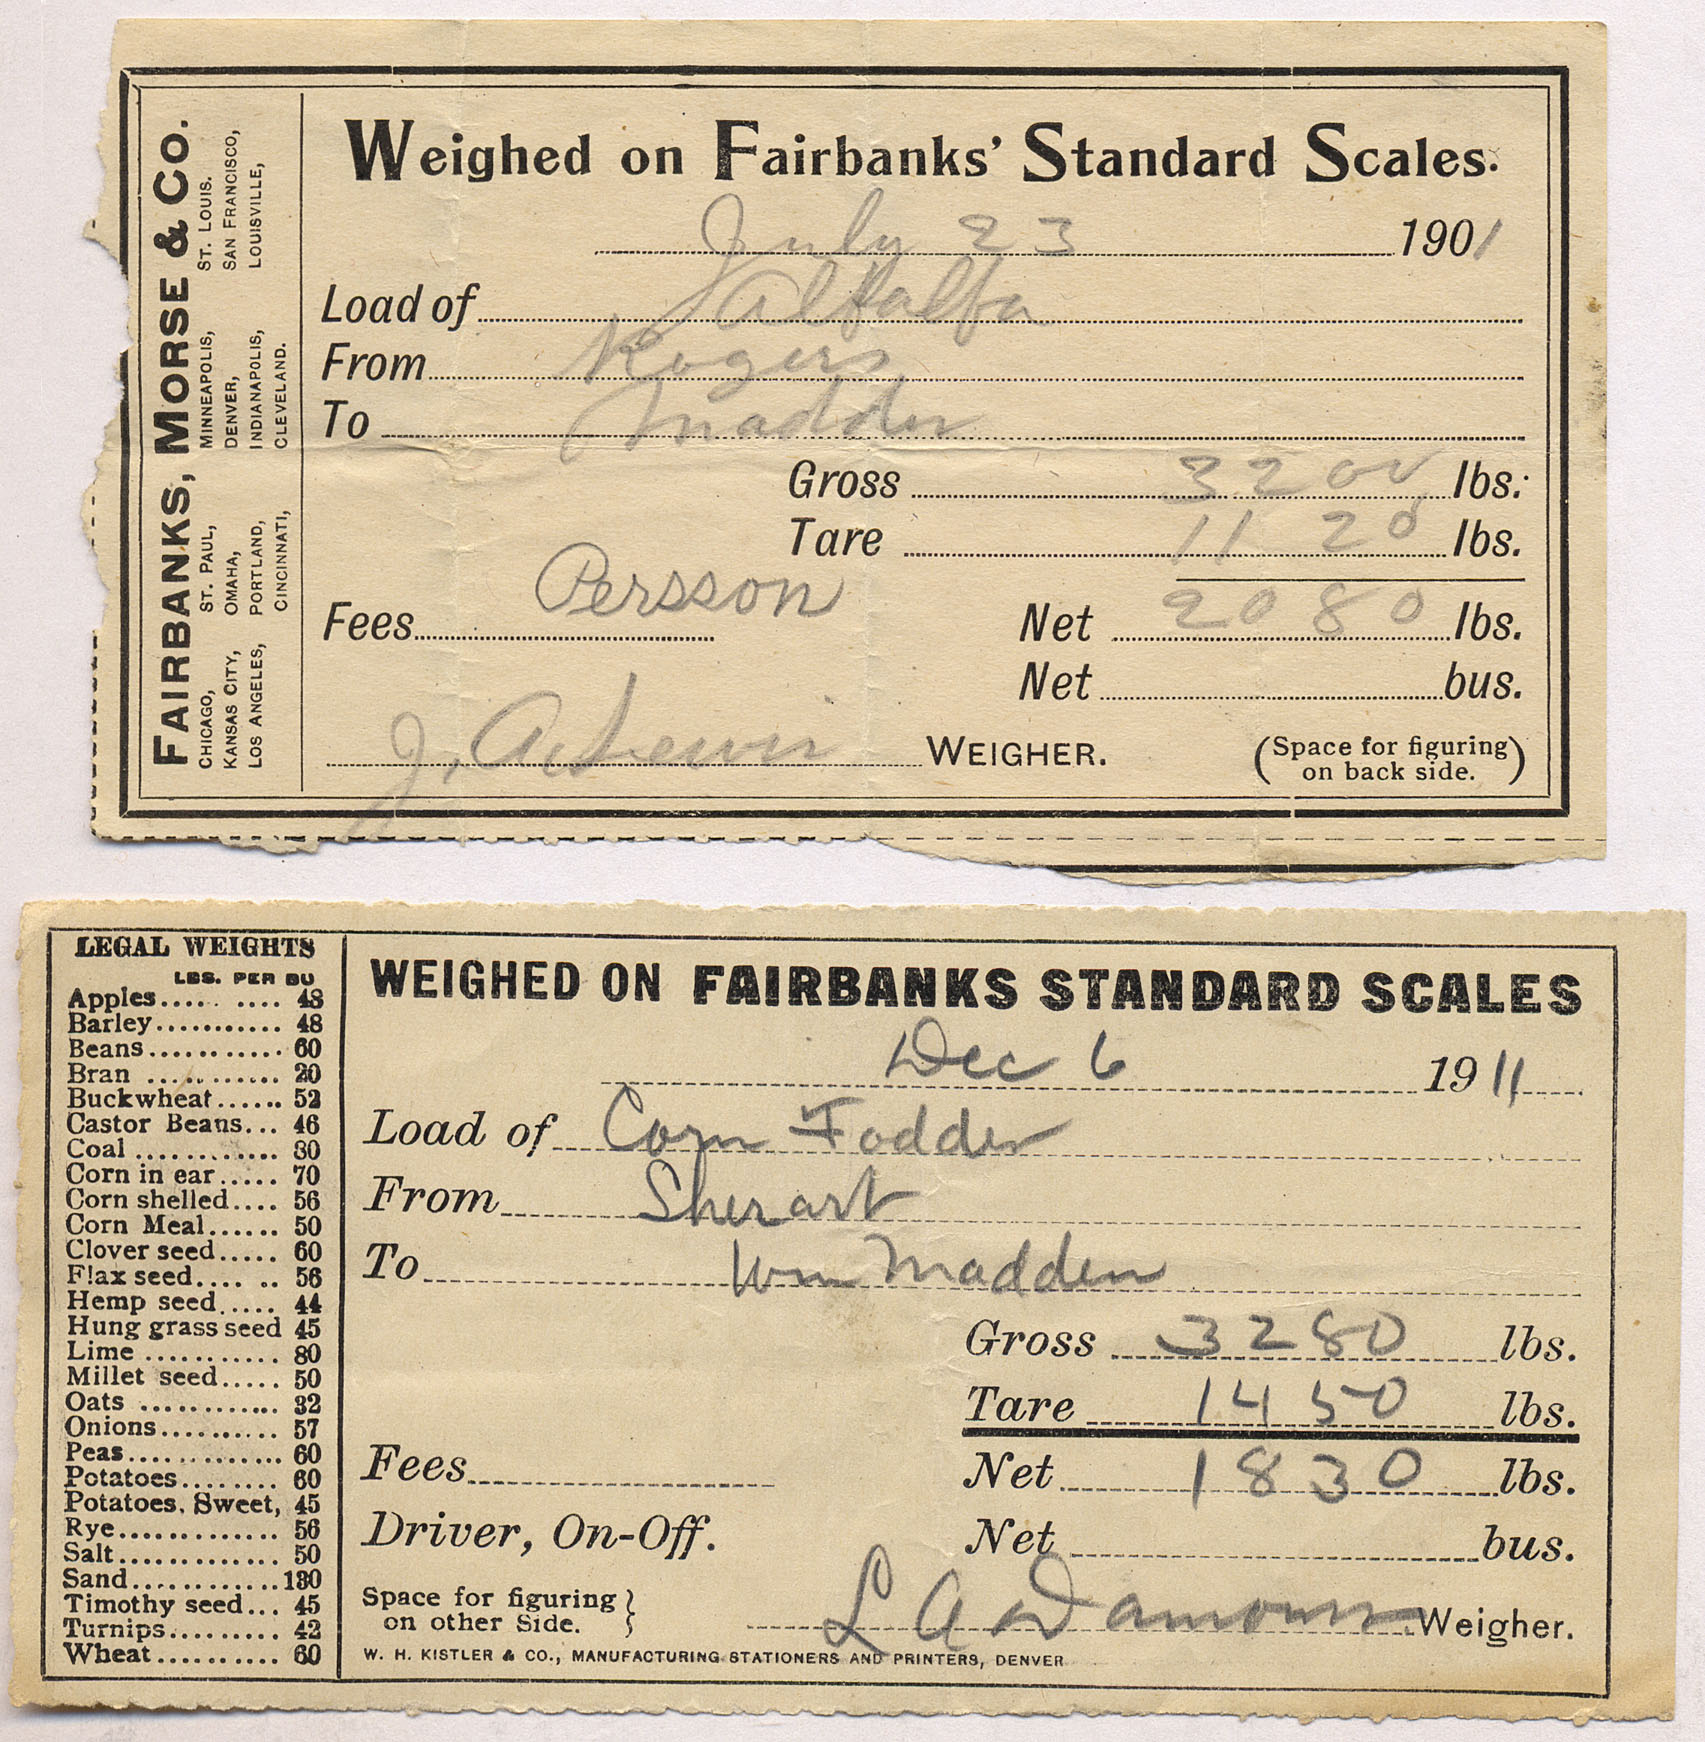 FAIRBANKS, MORSE & CO.
CHICAGO, ST. PAUL, MINNEAPOLIS, ST. LOUIS.
KANSAS CITY, OMAHA, DENVER, SAN FRANCISCO,
LOS ANGELES, PORTLAND, INDIANAPOLIS, LOUISVILLE,
CINCINNATI, CLEVELAND.
Weighed on Fairbanks' Standard Scales.
July 23 1901
Load of Alfalfa
From Rogers
To Madden
Gross 3200 lbs.
Tare 1120 lbs.
Fees Persson Net 2080 lbs.
Net bus.
J. A. Lewis WEIGHER. (Space for figuring
on back side.)
LEGAL WEIGHTS
LBS. PER BU
Apples..... .... 48
Barley........... 48
Beans........... 60
Bran ........... 20
Buckwheat...... 52
Castor Beans... 46
Coal ............ 80
Corn in ear ..... 70
Corn shelled.... 56
Corn Meal...... 50
Clover seed..... 60
Flax seed.... .. 56
Hemp seed..... 44
Hung grass seed 45
Lime ........... 80
Millet seed..... 50
Oats ............ 32
Onions.......... 57
Peas............. 60
Potatoes........ 60
Potatoes, Sweet, 45
Rye............. 56
Salt............. 50
Sand............130
Timothy seed... 45
Turnips......... 42
Wheat........... 60
WEIGHED ON FAIRBANKS STANDARD SCALES
Dec 6 1911
Load of Corn Fodder
From Sherart
To Wm Madden
Gross 3280 lbs.
Tare 1450 lbs.
Fees Net 1830 lbs.
Driver, On-Off. Net bus.
Space for figuring
on other Side. L A Weigher.
W. H. KISTLER & CO., MANUFACTURING STATIONERS AND PRINTERS, DENVER